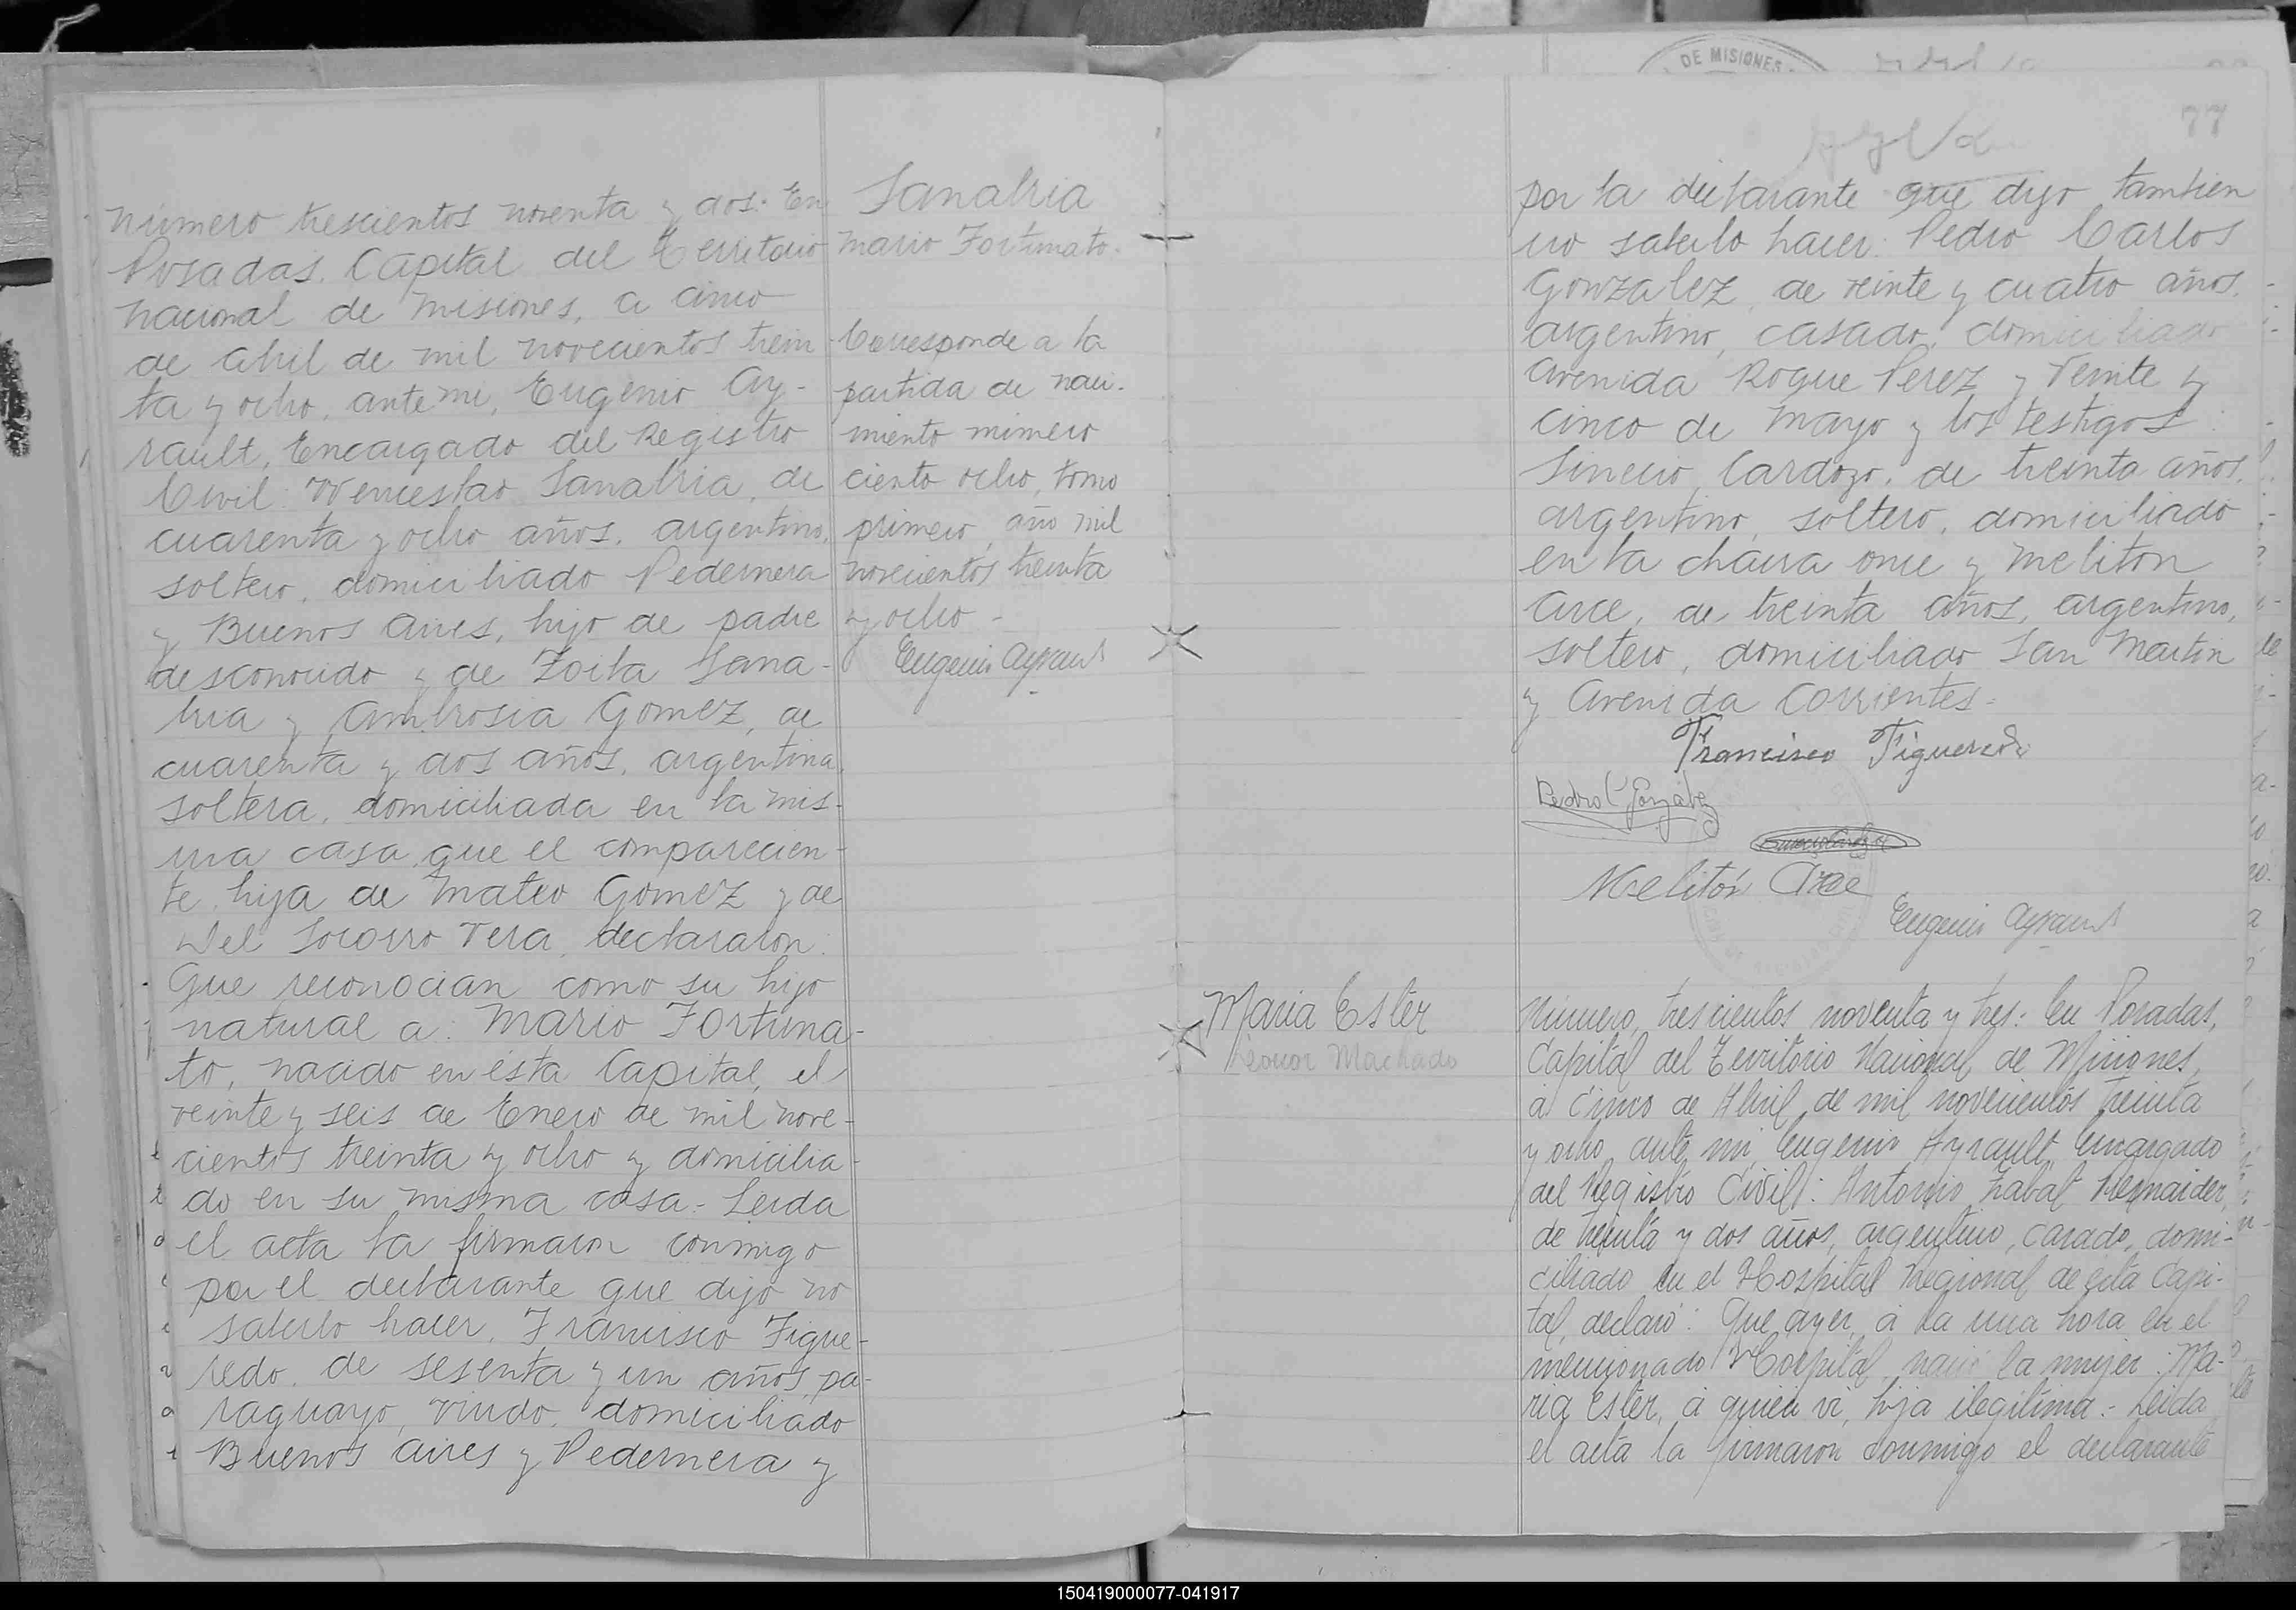 número trescientos noventa y dos: En
Posadas, Capital del Territorio
nacional de Misiones, a cinco
de abril de mil novecientos trein
ta y ocho, ante mi, Eugenio Ay-
rault, Encargado del Registro
Civil: Wenceslao Sanabria, de
cuarenta y ocho años, argentino,
soltero, domiciliado Pedernera
y Buenos Aires, hijo de padre
desconocido y de Zoila Sana-
bria y Ambrosia Gomez, de
cuarenta y dos años, argentina,
soltera, domiciliada en la mis-
ma casa que el comparecien-
te, hija de Mateo Gomez y de
del Socorro Vera, declararon:
Que reconocian como su hijo
natural a: Mario Fortuna-
to, nacido en ésta Capital, el
veinte y seis de Enero de mil nove-
cientos treinta y ocho y domicilia-
do en su misma casa.- Leida
el acta la firmaron conmigo
por el declarante que dijo no
saberlo hacer, Francisco Figue-
redo, de sesenta y un años, pa-
raguayo, viudo, domiciliado
Buenos Aires y Pedernera y
Sanabria
Mario Fortunato.
Corresponde a la
partida de naci-
miento número
ciento ocho, tomo
primero, año mil
novecientos treinta
y ocho -
Eugenio Ayrault
DE MISIONES
77
por la declarante que dijo tambien
no saberlo hacer: Pedro Carlos
Gonzalez, de veinte y cuatro años,
argentino, casado, domiciliado
Avenida Roque Perez y Veinte y
cinco de Mayo y los testigos:
Sinecio Cardozo, de treinta años,
argentino, soltero, domiciliado
en la chacra once y Meliton
Arce, de treinta años, argentino,
soltero, domiciliado San Martin
y Avenida Corrientes-
Francisco Figueredo
Pedro C Gonzáles
Melitón Arce
Eugenio Ayrault
Maria Ester
Leonor Machado
Número, trescientos noventa y tres: En Posadas,
Capital del Territorio Nacional de Misiones,
á cinco de Abril de mil novecientos treinta
y ocho, ante mi, Eugenio Ayrault Encargado
del Registro Civil: Antonio Labat Hernaider,
de treinta y dos años, argentino, casado, domi-
ciliado en el Hospital Regional de esta Capi-
tal, declaró: Que ayer, á la una hora en el
mencionado Hospital, nació la mujer: Ma-
ria Ester, á quien vi, hija ilegitima.- Leida
el acta la firmaron conmigo el declarante
150419000077-041917